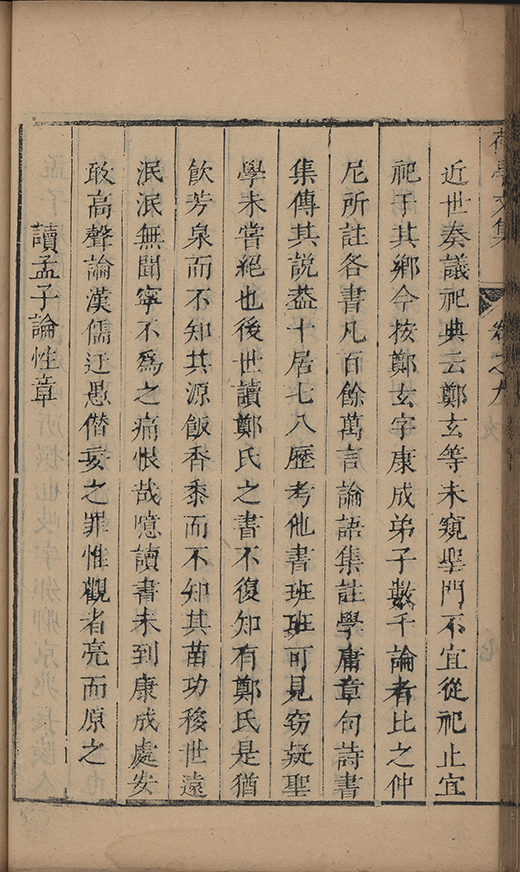 卷之九
近世奏議祀典云鄭玄等未窺聖門不宜從祀止宜
祀于其鄉今按鄭玄字康成弟子數千論者比之仲
尼所註各書凡百餘萬言論語集註學庸章句詩書
集傳其說葢十居七八歷考他書班班可見窃疑聖
學未嘗絕也後世讀鄭氏之書不復知有鄭氏是猶
飲芳泉而不知其源飯香黍而不知其苗功移世遠
泯泯無聞寧不為之痛恨哉噫讀書未到康成處安
敢高聲論漢儒迂愚僭妄之罪惟觀者亮而原之
讀孟子論性章